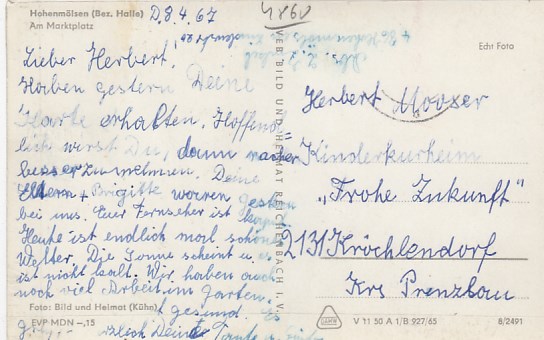 Hohenmölsen (Bez. Halle) D. 8.4.67
Am Marktplatz
4860
Echt Foto
Lieber Herbert!
Haben gestern Deine
Karte erhalten. Hoffent
lich wirst Du, dann
besser zunehmen. Deine
Eltern + Brigitte waren gestern
bei uns. Euer Fernseher ist
Heute ist endlich mal schönes
Wetter. Die Sonne scheint u. es
ist nicht kalt. Wir haben auch
noch viel Arbeit im Garten.
Foto: Bild und Heimat (Kühn)
gesund. Es
EVP MDN -,15
Deine Tante u.
VEB BILD UND HEIMAT REICHENBACH i. V.
Herbert
Kinderkurheim
„Frohe Zukunft"
2131 Kröchlendorf
Krs Prenzlau
V 11 50 A 1/B 927/65 8/2491